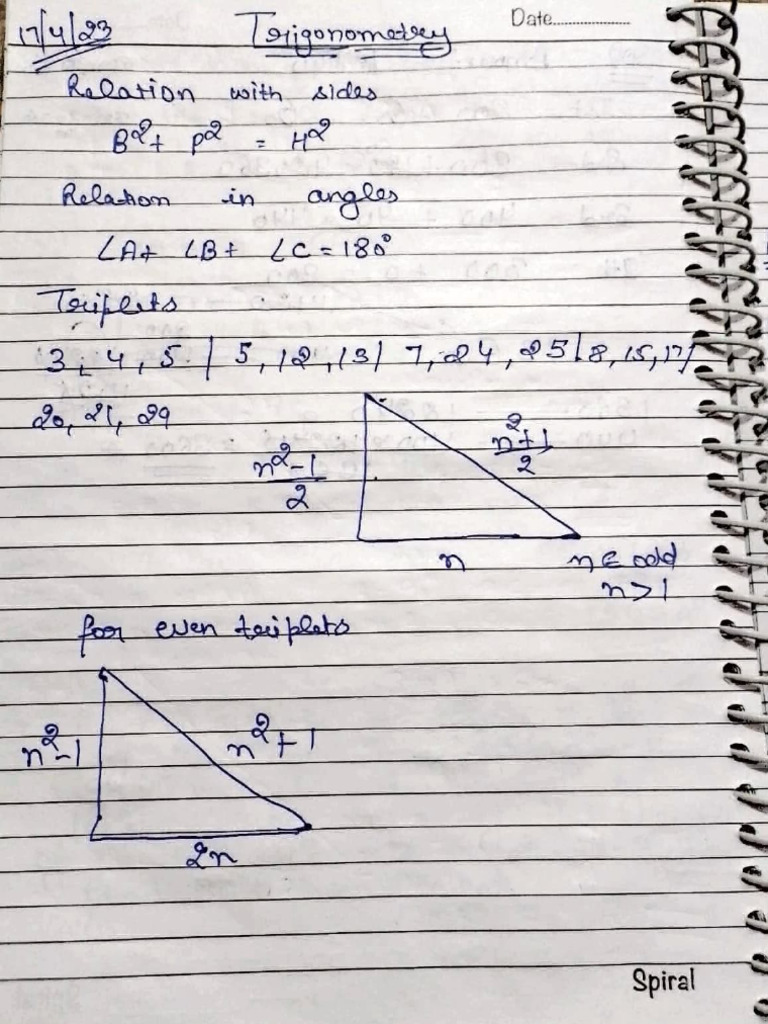 17/4/23 Trigonometry Date
Relation with sides
B² + P² = H²
Relation in angles
∠A + ∠B + ∠C = 180°
Triplets
3, 4, 5 | 5, 12, 13 | 7, 24, 25 | 8, 15, 17 |
20, 21, 29
n²-1/2 n²+1/2
n n ∈ odd
n > 1
for even triplets
n²-1 n²+1
2n
Spiral